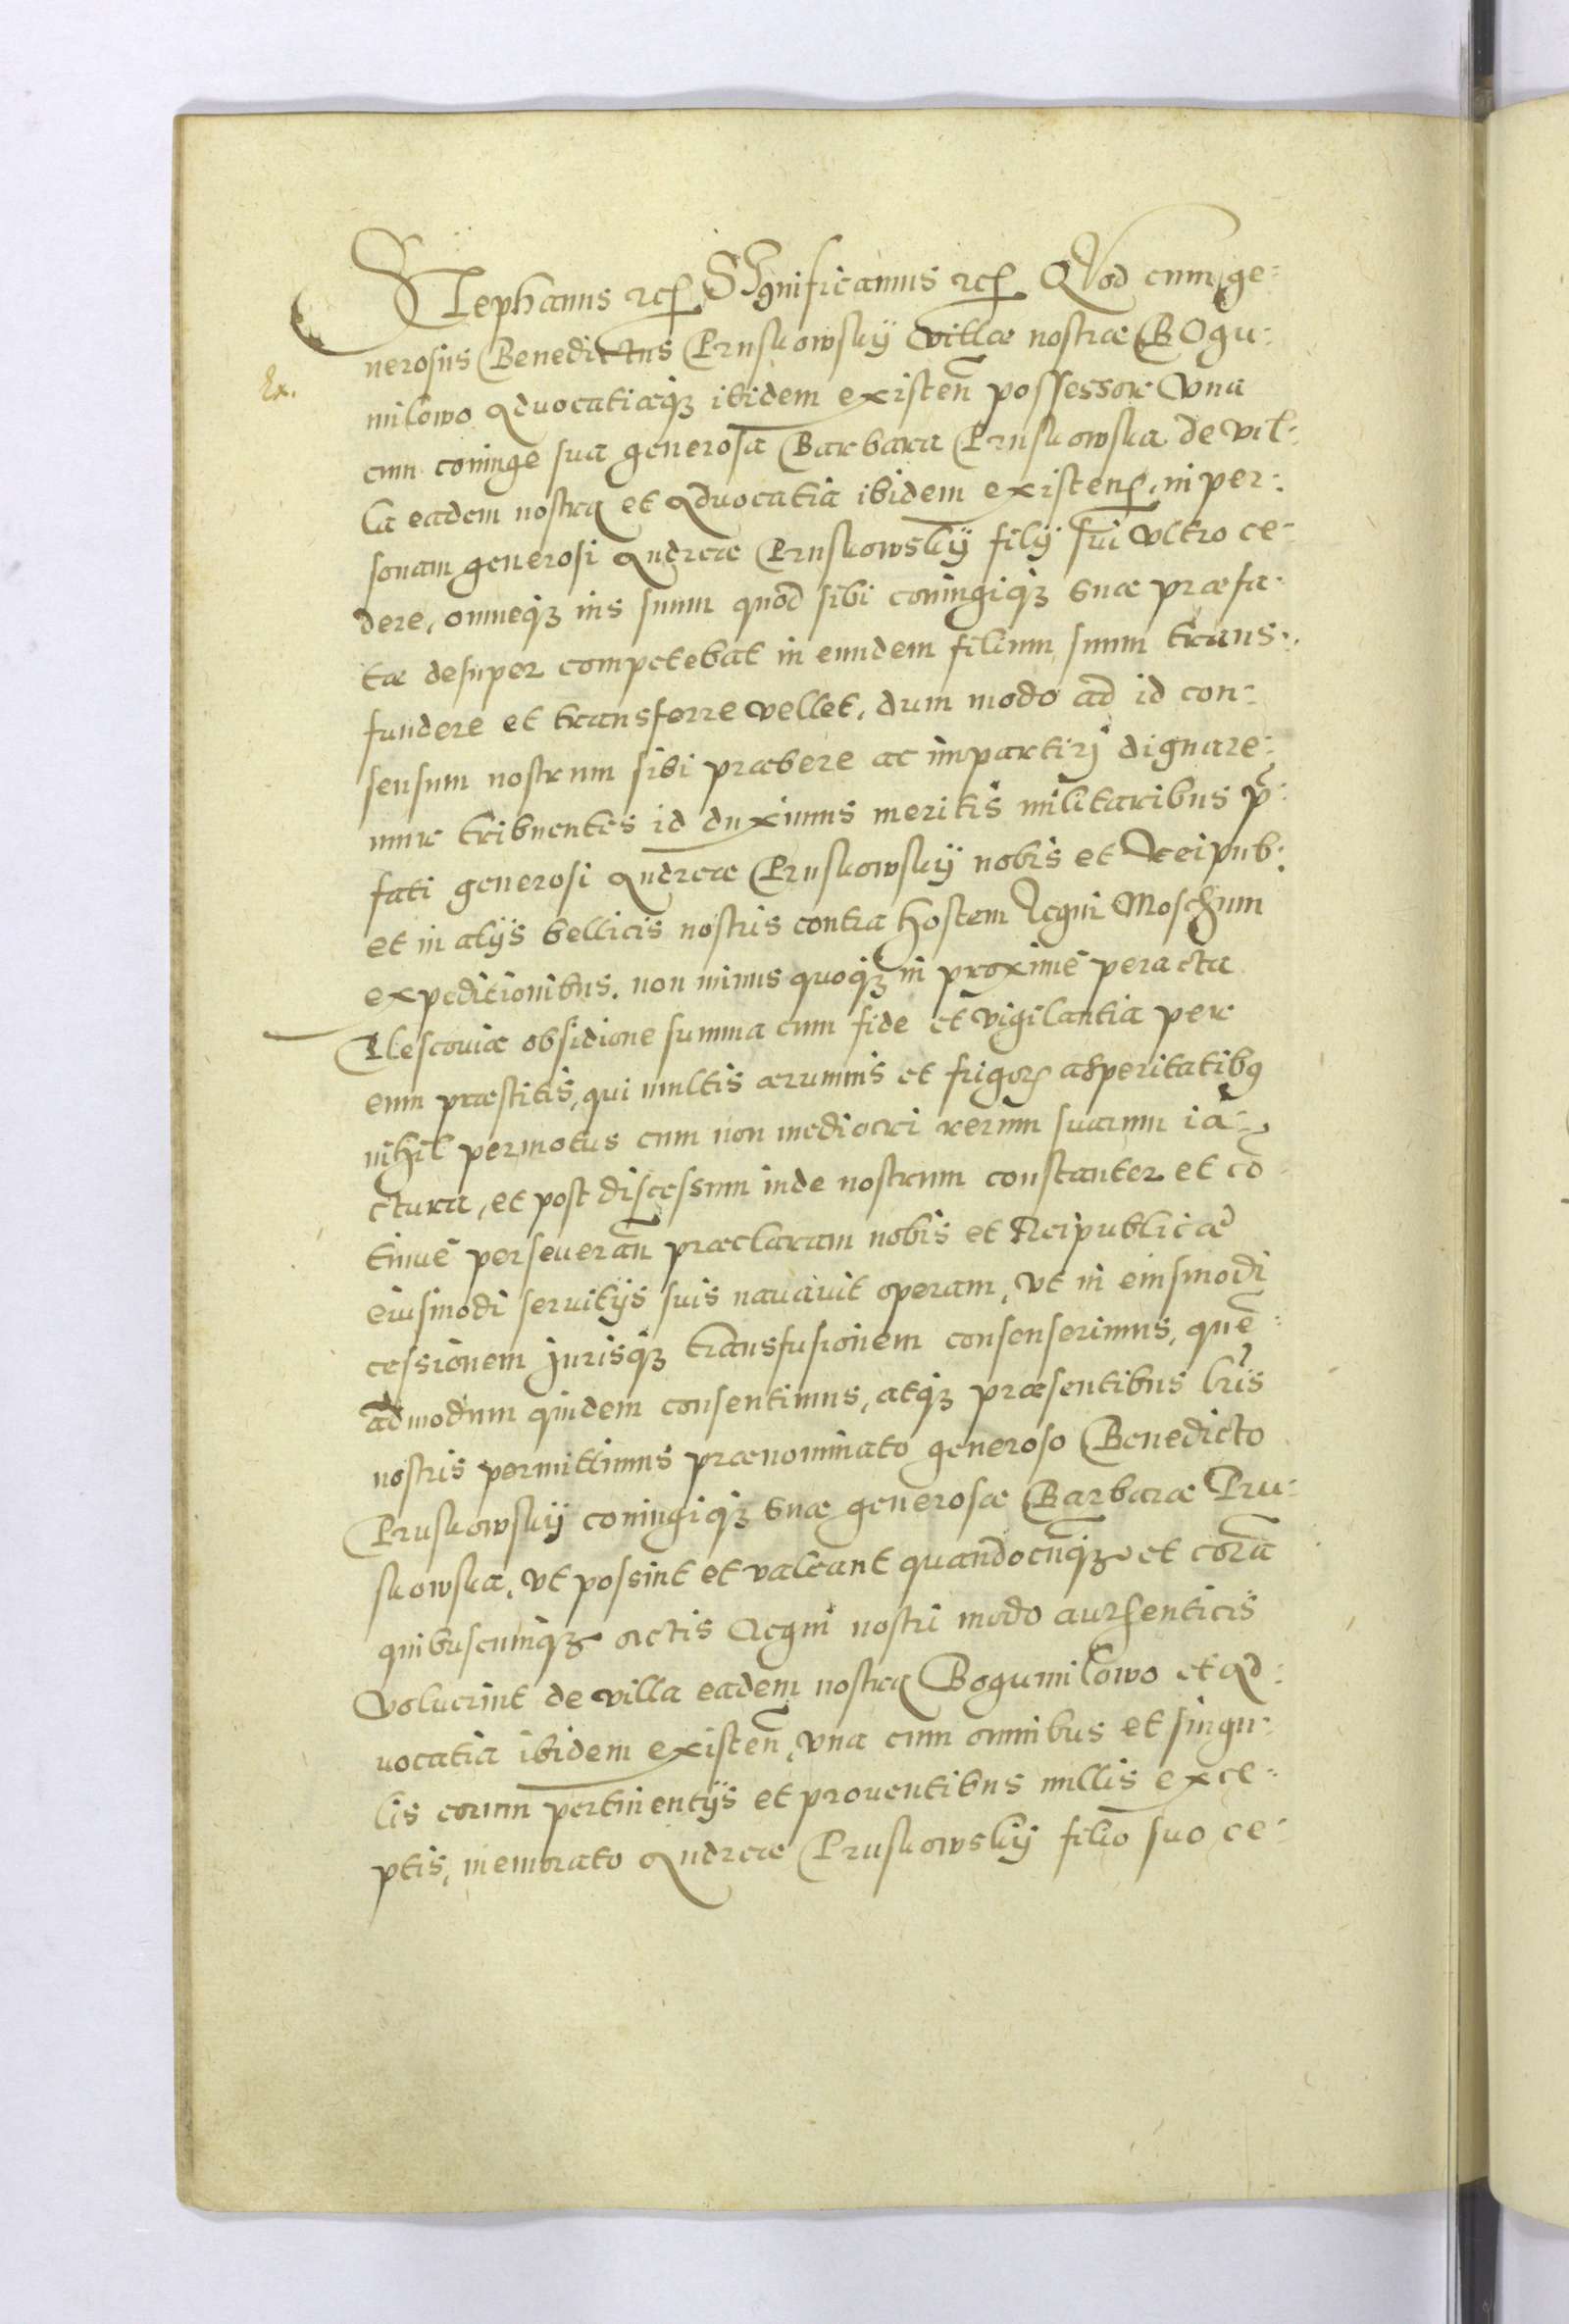 STephanus etc. SIgnificamus etc. QVod cum ge:
nerosus Benedictus Pruskowskij villæ nostræ BOgu:
Ex.
milowo Aduocatiæq3 itidem existen̄ possessor Vna
cum coniuge sua generosa Barbara Pruskowska de vil:
la eadem nostra et Aduocatia ibidem existen. in per:
sonam generosi Andreæ Pruskowskij filij sui vltro ce:
dere, omneq3 ius suum quod sibi coniugiq3 suæ præfa:
tæ desuper competebat in eundem filium suum trans:
fundere et transferre vellet, dum modo ad id con:
sensum nostrum sibi præbere ac impartirj dignare:
mur tribuentes id duximus meritis militaribus p̄:
fati generosi Andreæ Pruskowskij nobis et Reipub:
et in alijs bellicis nostris contra hostem Regni Moschum
expeditionibus. non minus quoq3 in proximè peracta
Plescouiæ obsidione summa cum fide et vigilantia per
eum præstitis, qui multis ærumnis et frigor. asperitatibus
nihil permotus cum non mediocri rerum suarum ia:
ctura, et post discessum inde nostrum constanter et cō
tinuè perseueran̄ præclaram nobis et Reipublicæ
eiusmodi seruitijs suis nauauit operam, vt in eiusmodi
cessionem Jurisq3 transfusionem consenserimus, quē:
admodum quidem consentimus, atq3 præsentibus lr̄is
nostris permittimus prænominato generoso Benedicto
Pruskowskij coniugiq3 suæ generosæ Barbaræ Pru:
skowska, vt possint et valeant quandocunq3 et corā
quibuscunq3 actis Regni nostri modo authenticis
Voluerint de villa eadem nostra Bogumilowo et Ad:
uocatia ibidem existen̄, vna cum omnibus et singu:
lis eorum pertinentijs et prouentibus nullis exce:
ptis, memorato Andreæ Pruskowskij filio suo ce: